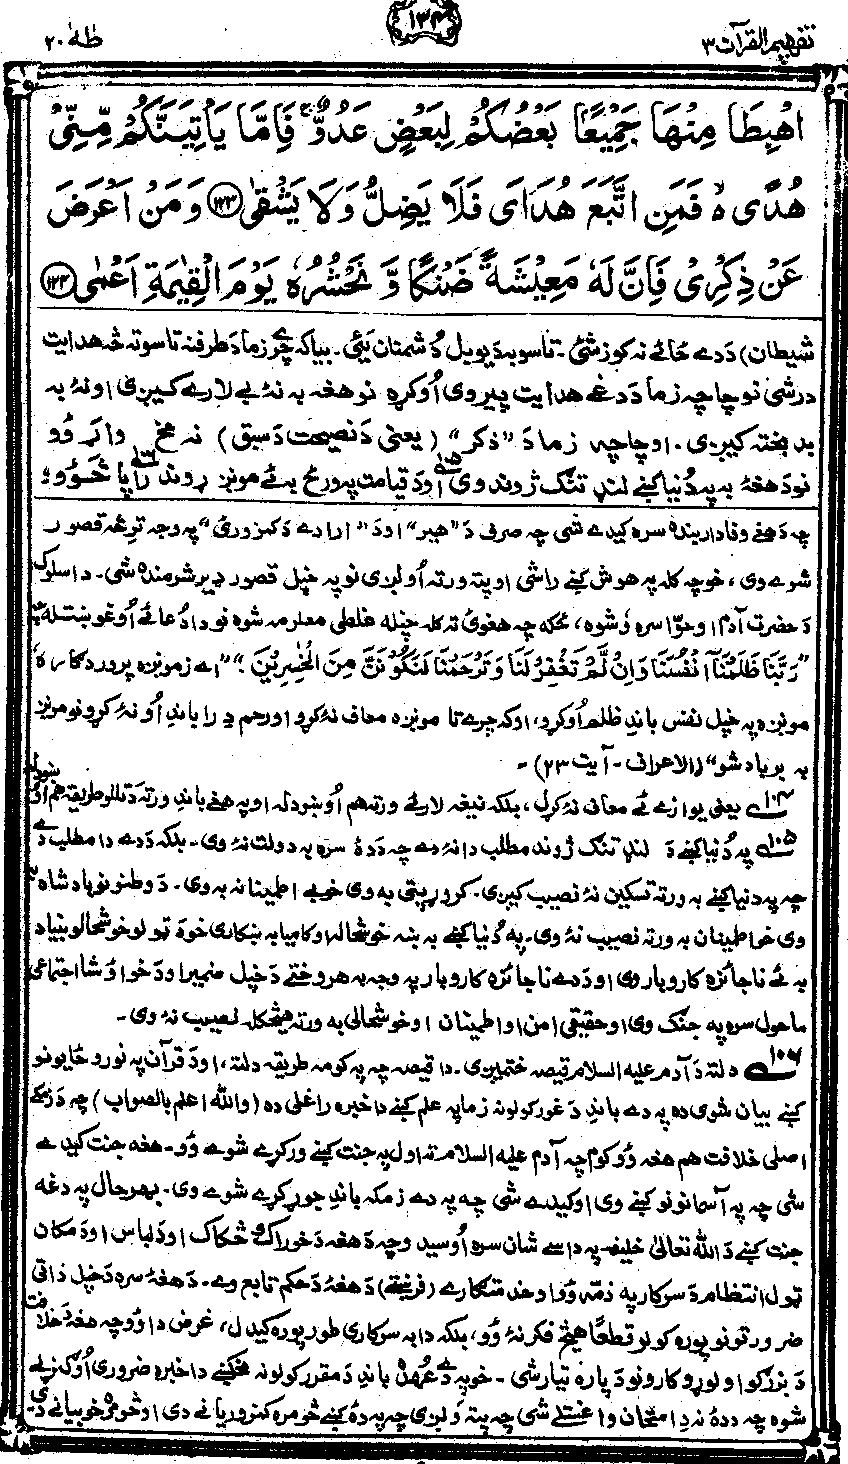 تفهيم القرآن ۳
۱۳۴
طٰهٰ ۲۰
اهْبِطَا مِنْهَا جَمِيْعًۢا بَعْضُكُمْ لِبَعْضٍ عَدُوٌّ ۚ فَاِمَّا يَاْتِيَنَّكُمْ مِّنِّيْ
هُدًى ۙ۬ فَمَنِ اتَّبَعَ هُدَايَ فَلَا يَضِلُّ وَلَا يَشْقٰى ﴿۱۲۳﴾ وَمَنْ اَعْرَضَ
عَنْ ذِكْرِيْ فَاِنَّ لَهٗ مَعِيْشَةً ضَنْكًا وَّ نَحْشُرُهٗ يَوْمَ الْقِيٰمَةِ اَعْمٰى ﴿۱۲۴﴾
شیطان) دَدے ځائے نه کوز شئ۔ تاسو به دَ یو بل دُشمنان یئ۔ بیا که چرے زما دَ طرفنه تاسو ته څه هدایت
درشی نو چا چه زما دَ دغے هدایت پیروی اُوکړه نو هغه به نۀ بے لارے کیږی او نۀ به
بد بخته کیږی۔ او چا چه زما دَ "ذکر" (یعنی دَ نصیحت دَ سبق) نه مخ واړ وو
نو دَ هغۀ به په دُنیا کښے لنډ تنګ ژوند وی ۱۰۵ او دَ قیامت په ورځ به ئے مونږ ړوند راپا څوو؛
چه دَ هغے وفادار بنده سره کیدے شی چه صرف دَ "هیر" او دَ "ارادے دَ کمزورئ" په وجه ترغه قصور
شوے وی، خو چه کله په هوش کښے راشی او پته ورته اُولږی نو په خپل قصور ډیر شرمنده شی۔ دا سلوک
دَ حضرت آدم او حوّا سره وُشوه، ځکه چه هغوئ ته کله خپله غلطی معلومه شوه نو دا دُعا ئے اُوغوښتله چه
"رَبَّنَا ظَلَمْنَآ اَنْفُسَنَا وَاِنْ لَّمْ تَغْفِرْ لَنَا وَتَرْحَمْنَا لَنَكُوْنَنَّ مِنَ الْخٰسِرِيْنَ؛" "اے زمونږه پروردګاره
مونږه په خپل نفس باندِ ظلم اُوکړو، او که چرے تا مونږه معاف نۀ کړو او رحم دِ را باندِ اُونۀ کړو نو مونږ
به برباد شو" (الاعراف۔ آیت ۲۳)۔
۱۰۴ یعنی یوازے ئے معاف نۀ کړل، بلکه نیغه لار ئے ورته هم اُوښودله او په هغے باندِ ورته دَ تللو طریقه هم اُو ښودله
۱۰۵ په دُنیا کښے دَ لنډ تنګ ژوند مطلب دا نۀ دے چه دَ دۀ سره به دولت نۀ وی۔ بلکه دَدے دا مطلب دے
چه په دنیا کښے به ورته تسکین نۀ نصیب کیږی۔ کروړ پتی به وی خو بے اطمینانه به وی۔ دَ وطنونو بادشاه به
وی خو اطمینان به ورته نصیب نۀ وی۔ په دُنیا کښے به
به ئے ناجائزه کاروبار وی او دَدے ناجائزه کاروبار په وجه به هر وختے دَ خپل ضمیر او دَ خوا وُشا اجتماعی
ماحول سره په جنګ وی او حقیقی امن او اطمینان او خوشحالی به ورته هیڅکله نصیب نۀ وی۔
۱۰۶ دلته دَ آدم علیه السلام قیصه ختمیږی۔ دا قیصه چه په کومه طریقه دلته، او دَ قرآن په نورو ځایونو
کښے بیان شوی ده په دے باندِ دَ غور کولو نه زما په علم کښے دا خبره راغلی ده (والله اعلم بالصواب) چه دَ زمکے
اصلی خلافت هم هغه وُو کوم چه آدم علیه السلام ته اول په جنت کښے ورکړے شوے وُو۔ هغه جنت کیدے
شی چه په آسمانونو کښے وی او کیدے شی چه په دے زمکه باندِ جوړ کړے شوے وی۔ بهرحال په دغه
جنت کښے دَ الله تعالیٰ خلیفه په داسے شان سره اُوسید وچه دَ هغه دَ خوراک و څکاک او دَ لباس او دَ مکان
ټول انتظام دَ سرکار په ذمّه وُو او خدمتګارے (فرښتے) دَ هغۀ دَ حکم تابع وے۔ دَ هغۀ سره دَ خپل ذاتی
ضرورتونو پوره کولو قطعًا هیڅ فکر نۀ وُو، بلکه دا به سرکاری طور پوره کیدل، غرض دا وُو چه هغه دَ خلافت
دَ بزرګو او لوړو کارونو دَ پاره تیار شی۔ خو په دے عُهده باندِ دَ مقرر کولو نه مخکښے دا خبره ضروری اُوګنړلے
شوه چه دَدۀ نه دِ امتحان واغستلے شی چه پته ولږی چه په دۀ کښے څومره کمزوریانے دی او څومره خوبیانے دی۔